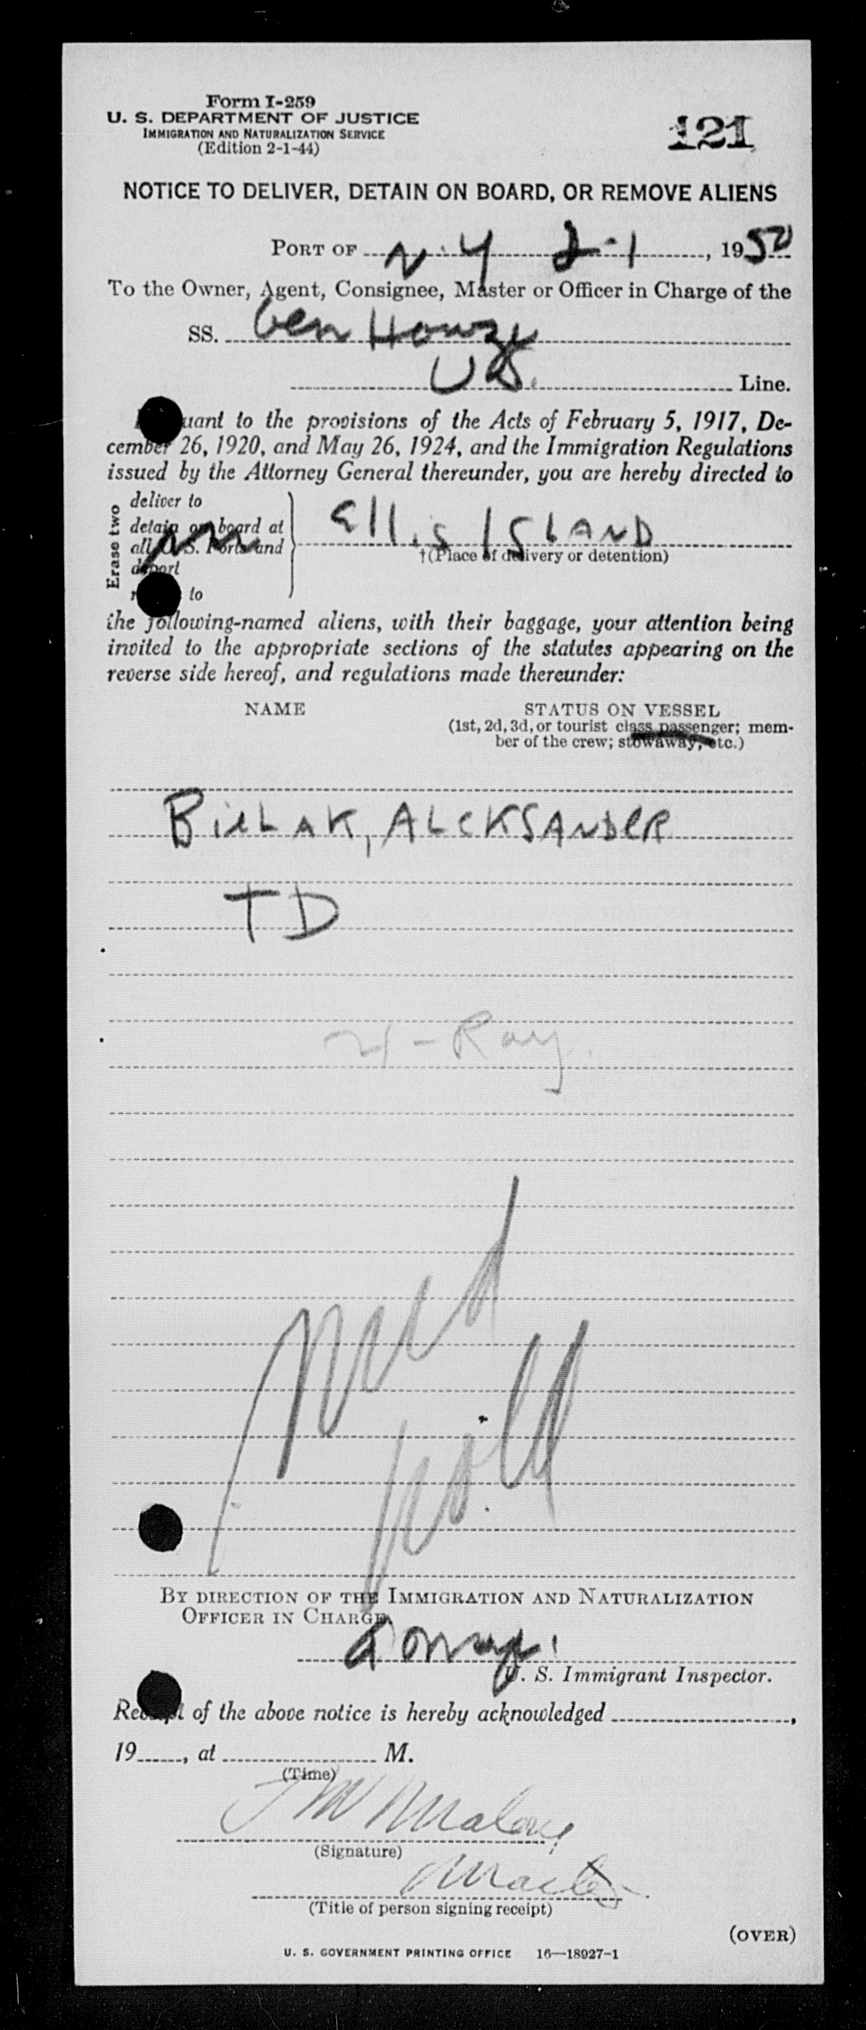 Form I-259
U. S. DEPARTMENT OF JUSTICE
IMMIGRATION AND NATURALIZATION SERVICE
(Edition 2-1-44)
121
NOTICE TO DELIVER, DETAIN ON BOARD, OR REMOVE ALIENS
PORT OF N.Y 2-1, 1950
To the Owner, Agent, Consignee, Master or Officer in Charge of the
SS. Gen Howze
US. Line.
uant to the provisions of the Acts of February 5, 1917, De-
cember 26, 1920, and May 26, 1924, and the Immigration Regulations
issued by the Attorney General thereunder, you are hereby directed to
Erase two
deliver to
detain on board at
all U. S. Ports and
deport
to
Ellis ISLAND
†(Place of delivery or detention)
the following-named aliens, with their baggage, your attention being
invited to the appropriate sections of the statutes appearing on the
reverse side hereof, and regulations made thereunder:
NAME
STATUS ON VESSEL
(1st, 2d, 3d, or tourist class passenger; mem-
ber of the crew; stowaway, etc.)
BIELAK, ALEKSANDER
TD
X-Ray.
Med
Hold
BY DIRECTION OF THE IMMIGRATION AND NATURALIZATION
OFFICER IN CHARGE
U. S. Immigrant Inspector.
Receipt of the above notice is hereby acknowledged ,
19 , at M.
(Time)
Malone
(Signature)
Master
(Title of person signing receipt)
(OVER)
U. S. GOVERNMENT PRINTING OFFICE 16—18927-1